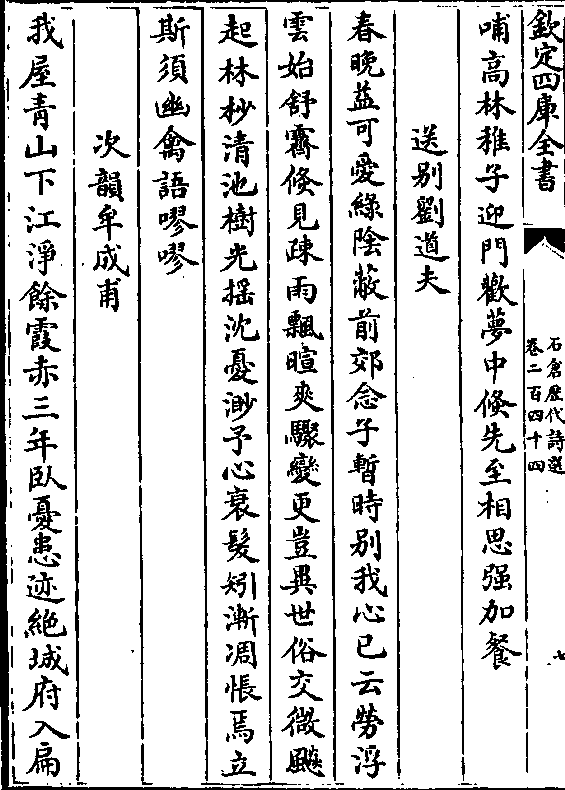 欽定四庫全書
石倉歷代詩選
卷二百四十四
七
哺高林稚子迎門歡夢中倐先至相思强加餐
送别劉道夫
春晚益可愛綠陰蔽前郊念子暫時别我心已云勞浮
雲始舒霽倐見疎雨飄暄爽驟變更豈異世俗交微飈
起林杪清池樹光揺沈憂渺予心衰髮矧漸凋悵焉立
斯須幽禽語嘐嘐
次韻牟成甫
我屋青山下江淨餘霞赤三年臥憂患迹絶城府入扁